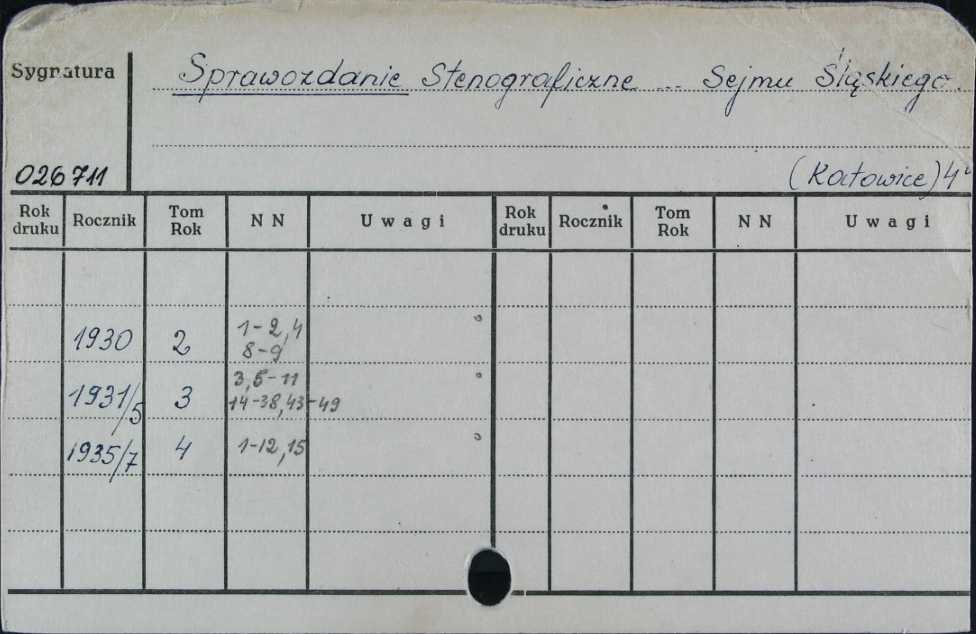 Sygnatura
Sprawozdanie Stenograficzne ... Sejmu Śląskiego.
026711
(Katowice) 4°
Rok druku Rocznik Tom Rok N N Uwagi Rok druku Rocznik Tom Rok N N Uwagi
1930 2 1-2,4
8-9
1931/5 3 3,5-11
14-38,43-49
1935/7 4 1-12,15